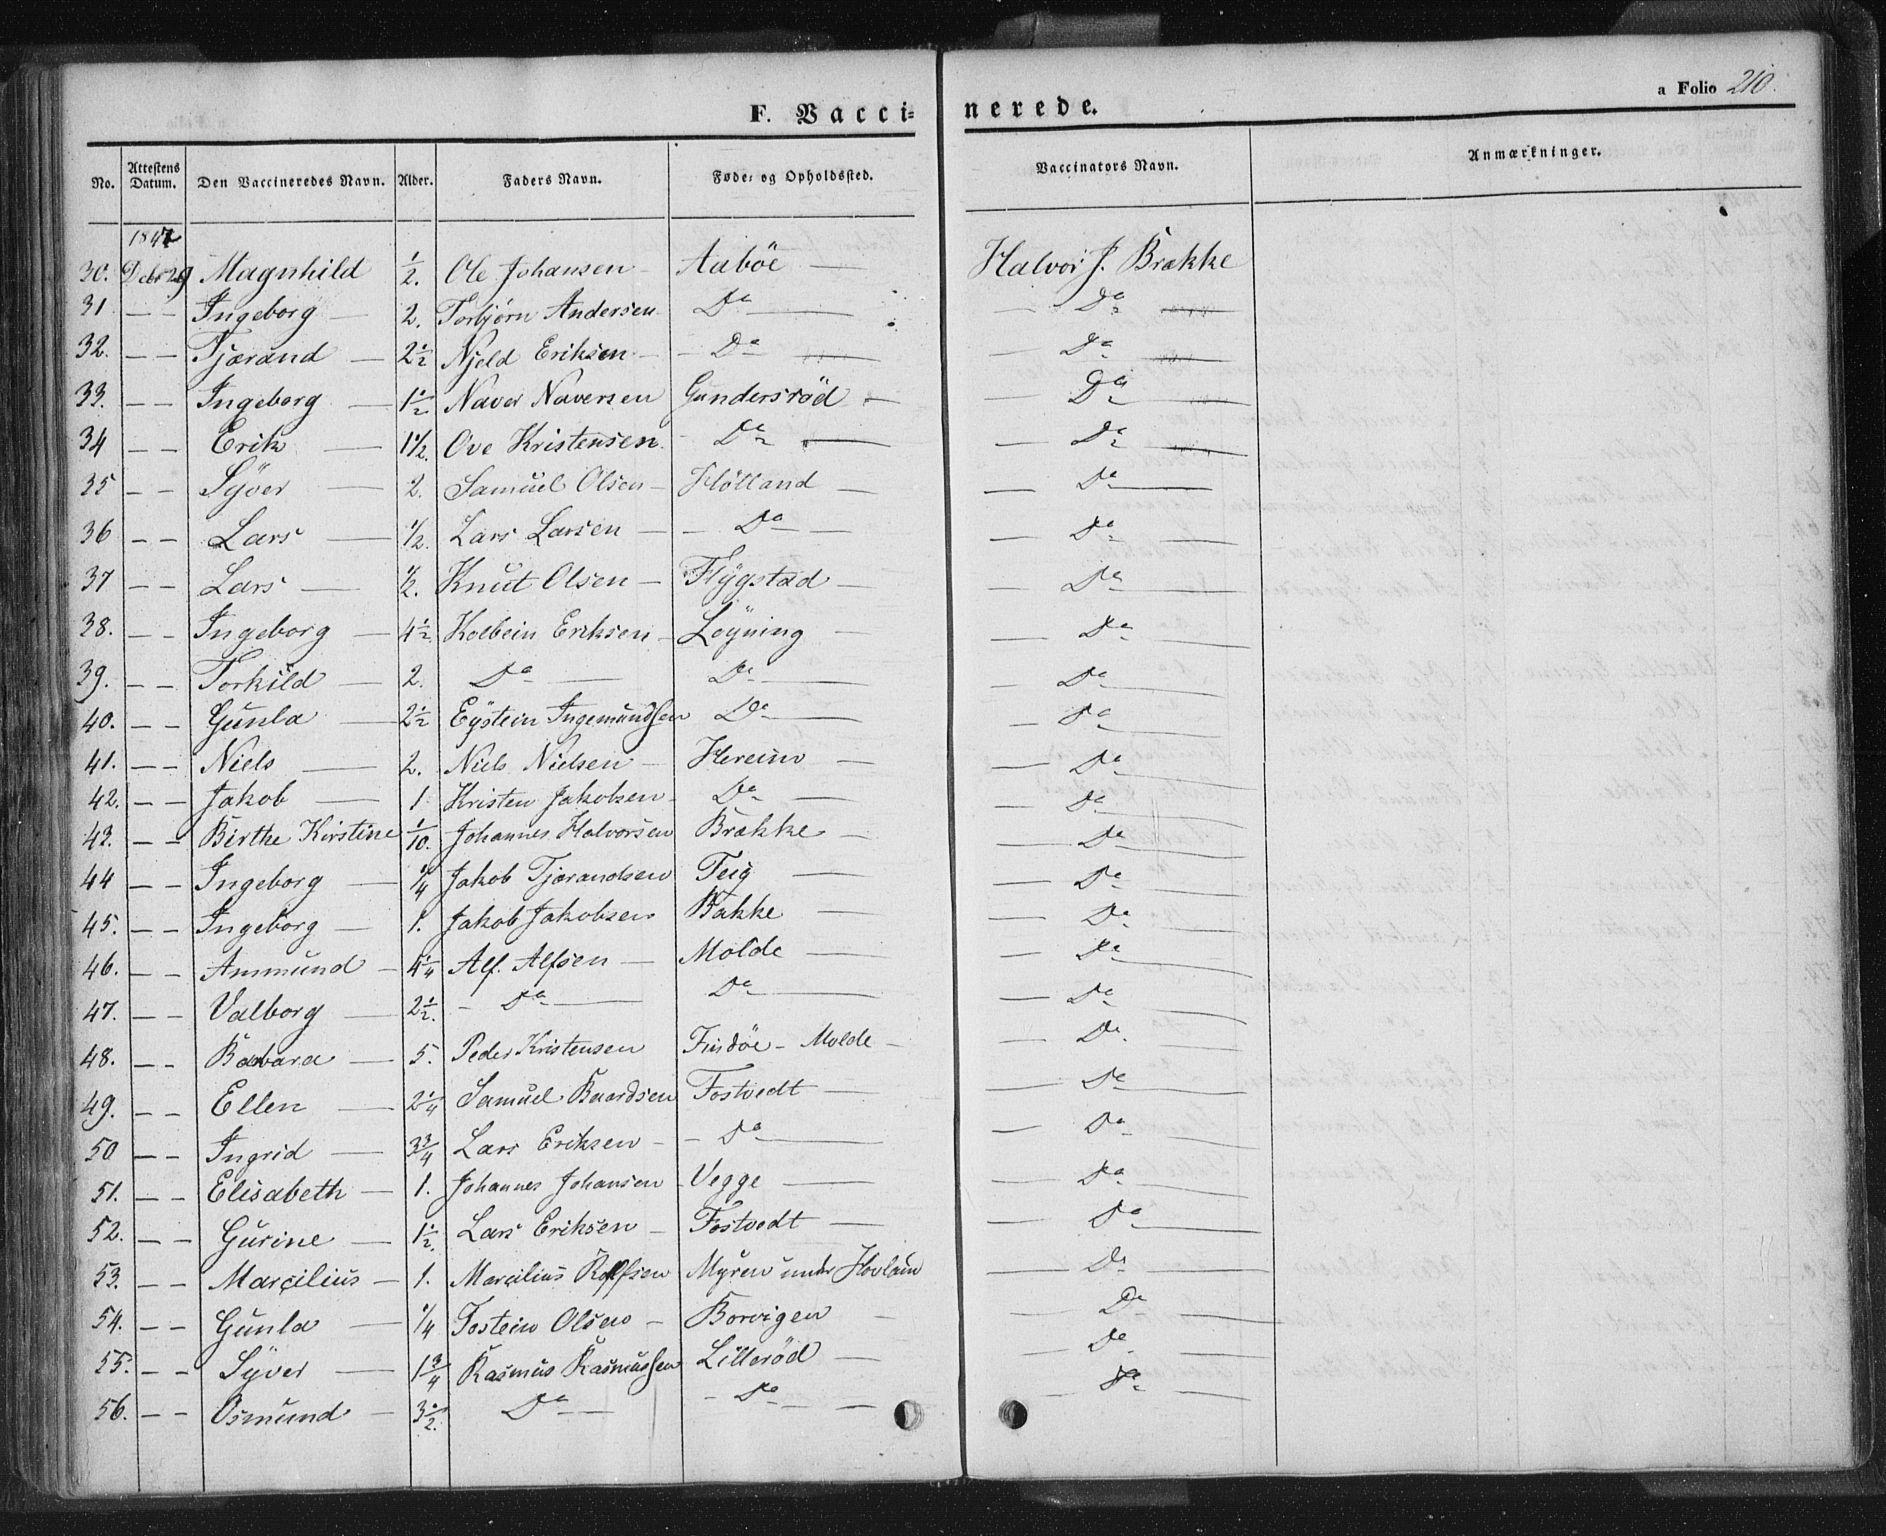 a Folio 210.
F. Vaccinerede.
No. Attestens Datum. Den Vaccineredes Navn. Alder. Faders Navn. Føde- og Opholdssted. Vaccinators Navn. Anmærkninger.
1847
30. Debr 29 Magnhild ½. Ole Johansen - Aaböe — Halvor J. Brække
31 - - Ingeborg — 2. Torbjörn Andersen Do — — Do —
32. - - Tjærand — 2½ Njeld Eriksen - - Do — — Do —
33. - - Ingeborg — 1½ Naver Naversen Gundersröd — — Do —
34 - - Erik — 1½. Ove Kristensen - Do — — Do —
35 - - Syver — 2. Samuel Olsen - Höttland — — Do —
36 - - Lars — ½. Lars Larsen — - Do — — Do —
37 - - Lars — ½. Knut Olsen — Flygstad — — Do —
38. - - Ingeborg — 4½. Kolbein Eriksen - Löyning — — Do —
39. - - Torkild — 2. Do — Do — — Do —
40. - - Gunla — 2½ Eystein Ingemundsen Do — — Do —
41. - - Niels — 2. Niels Nielsen — Hereim — — Do —
42. - - Jakob — 1 Kristen Jakobsen - Do — — Do —
43. - - Birthe Kirstine 1/10. Johannes Halvorsen Brække — — Do —
44 - - Ingeborg — ¼ Jakob Tjærandsen Teig — — Do —
45. - - Ingeborg — 1. Jakob Jakobsen Bakke — — Do —
46. - - Ammund - 4¼ Alf. Alfsen — Molde — — Do —
47. - - Valborg — 2½. - Do — Do — — Do —
48. - - Barbara — 5. Peder Kristensen Findöe - Molde - — Do.
49. - - Ellen — 2¼ Samuel Baardsen Fostvedt — — Do —
50 - - Ingrid — 3¾ Lars Eriksen - - Do — — Do —
51. - - Elisabeth — 1. Johannes Johansen Vegge — — Do —
52. - - Gurine — 1½. Lars Eriksen — Fostvedt — — Do —
53. - - Marcilius — 1. Marcilius Rolfsen Myren under Hovland — Do —
54. - - Gunla — ¼ Tostein Olsen — Borvigen — — Do —
55. - - Syver — 1¾ Rasmus Rasmussen Lilleröd — — Do —
56. - - Osmund — 3½. Do — - Do — — Do —